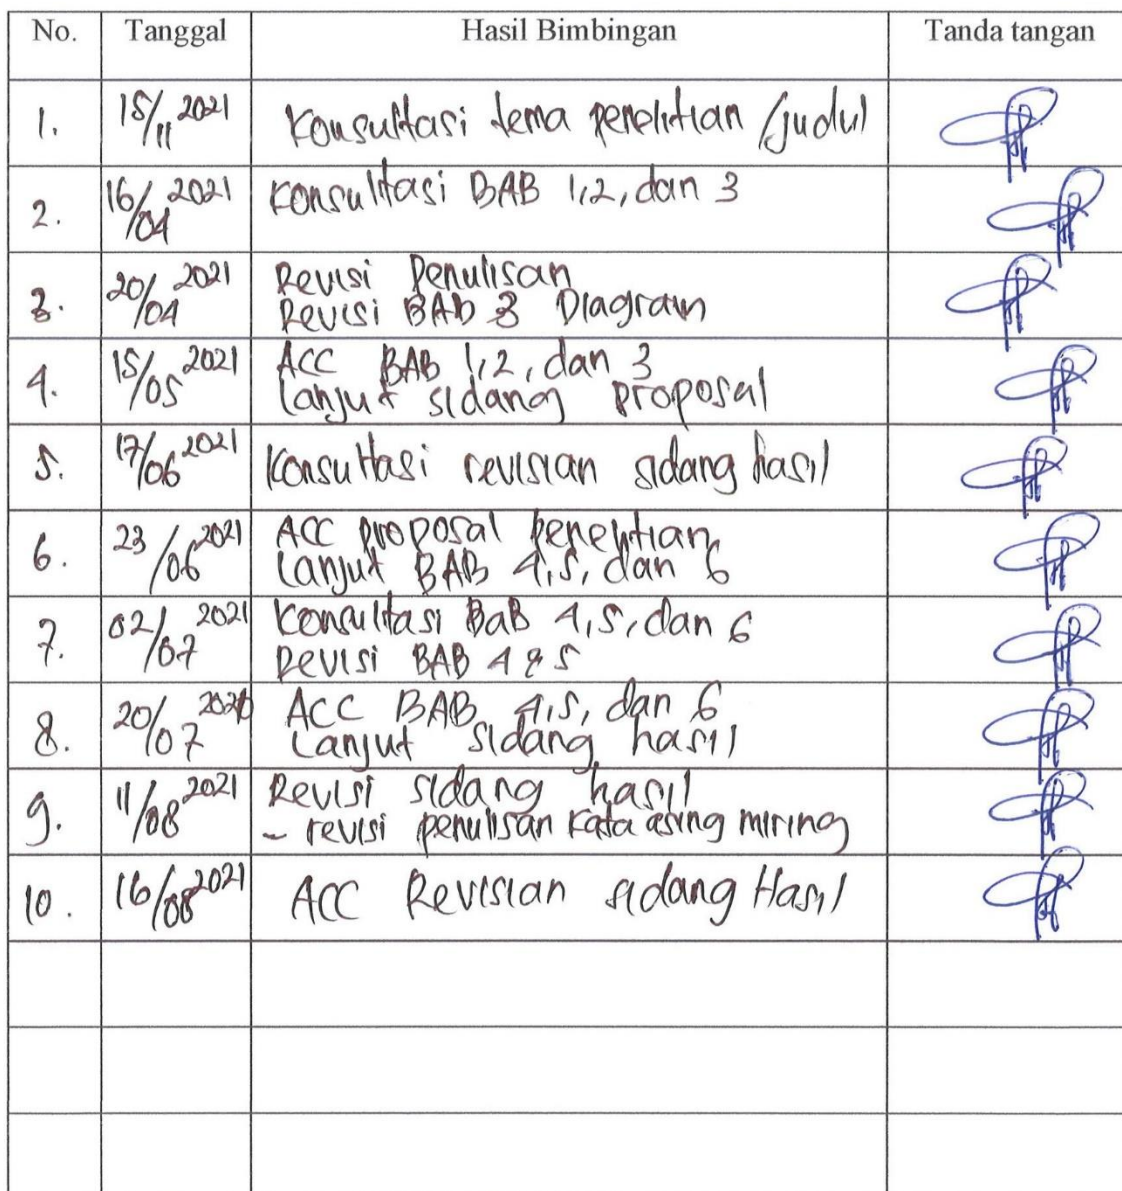 No. Tanggal Hasil Bimbingan Tanda tangan
1. 15/11 2021 Konsultasi tema penelitian /judul
2. 16/04 2021 Konsultasi BAB 1,2, dan 3
3. 20/04 2021 Revisi Penulisan
Revisi BAB 3 Diagram
4. 15/05 2021 ACC BAB 1,2, dan 3
Lanjut sidang proposal
5. 17/06 2021 Konsultasi revisian sidang hasil
6. 23/06 2021 ACC proposal penelitian
Lanjut BAB 4,5, dan 6
7. 02/07 2021 Konsultasi BaB 4,5, dan 6
Revisi BAB 4 & 5
8. 20/07 2021 ACC BAB 4,5, dan 6
Lanjut sidang hasil
9. 11/08 2021 Revisi sidang hasil
- revisi penulisan kata asing miring
10. 16/08 2021 ACC Revisian sidang Hasil